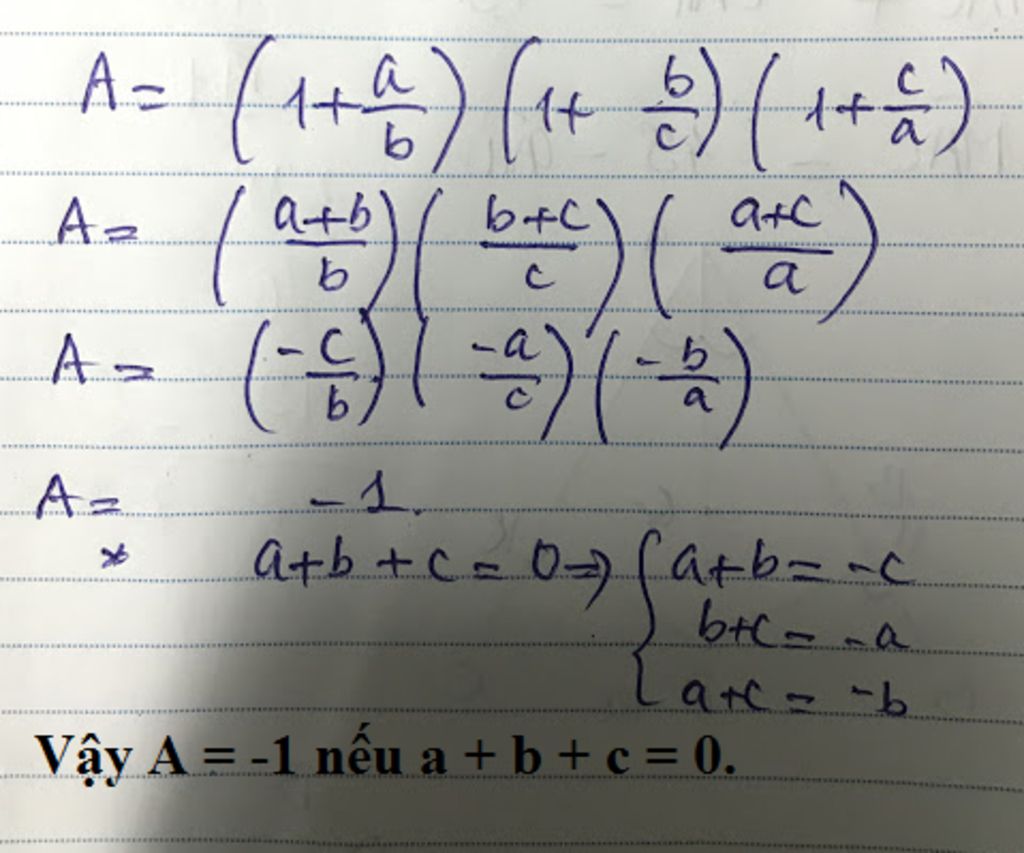 A = (1 + a/b) (1 + b/c) (1 + c/a)
A = (a+b/b) (b+c/c) (a+c/a)
A = (-c/b) (-a/c) (-b/a)
A = -1.
* a+b+c = 0 => { a+b = -c
b+c = -a
a+c = -b
Vậy A = -1 nếu a + b + c = 0.